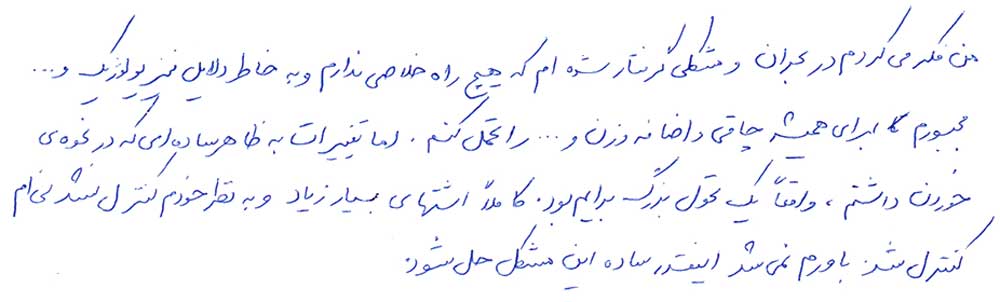 من فکر می کردم در بحران و مشکلی گرفتار شده ام که هیچ راه خلاصی ندارم و به خاطر دلایل فیزیولوژیک و...
مجبورم تا برای همیشه چاقی و اضافه وزن و ... را تحمل کنم. اما تغییرات به ظاهر ساده ای که در نحوه ی
خوردن داشتم، واقعاً یک تحول بزرگ برایم بود. کاملاً اشتهای بسیار زیاد و به نظر خودم کنترل نشدنی ام
کنترل شد. باورم نمی شد اینقدر ساده این مشکل حل شود.